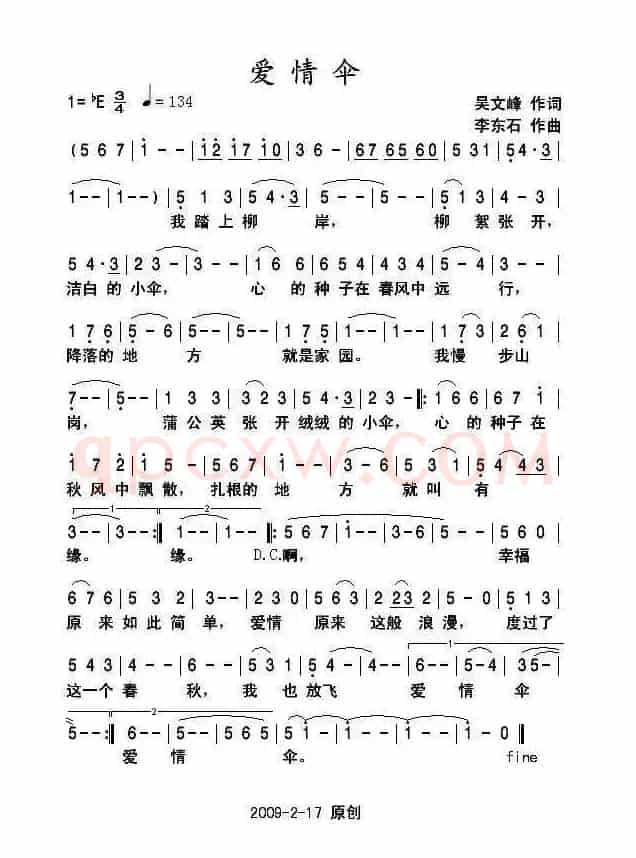 爱情伞
1=♭E 3/4 ♩=134 吴文峰 作词
李东石 作曲
(5 6 7 | 1 - - | 12 17 10 | 3 6 - | 67 65 60 | 5 31 | 54·3 |
1 - - | 1 - - ) | 5 1 3 | 5 4·3 | 5 - - | 5 - - | 5 1 3 | 4 - 3 |
我踏上柳 岸， 柳 絮张开，
5 4·3 | 2 3 - | 3 - - | 1 6 6 | 1 7 6 | 5 4 2 | 4 3 4 | 5 - - | 6 - - |
洁白的小伞， 心 的种子在春风中远 行，
1 7 6 | 5 - 6 | 5 - - | 5 - - | 1 7 5 | 1 - - | 1 7 3 | 2 6 1 |
降落的地 方 就是家园。 我慢 步山
7 - - | 5 - - | 1 3 3 | 3 2 3 | 5 4·3 | 2 3 - | 2 - - ‖: 1 6 6 | 6 7 1 |
岗， 蒲公英张开绒绒的小伞， 心的种子在
qpcxw.COM
1 7 2 | 1 5 - | 5 - - | 5 6 7 | 1 - - | 3 - 6 | 5 3 1 | 5 4 43 |
秋风中飘散，扎根的地 方 就叫有
1 2
3 - - | 3 - - :‖ 1 - - | 1 - - ‖: 5 6 7 | 1 - - | 3 - 6 | 5 - - | 5 6 0 |
缘。 缘。 D.C.啊， 幸福
6 7 6 | 5 3 2 | 3 - - | 2 3 0 | 5 6 3 | 2 23 2 | 5 - 0 | 5 1 3 |
原来如此简单，爱情 原来 这般 浪漫， 度过了
1
5 4 3 | 2 - - | 6 - 6 | 5 3 1 | 5 5 4 | 3 - - | 6 - - | 5 - 4 | 3 5 - |
这一个春 秋，我 也放飞 爱 情 伞
2
5 - - :‖ 6 - - | 5 - - | 2 - 5 | 5 6 5 | 5 1 - | 1 - - | 1 - - | 1 - 0 ‖
爱 情 伞。 fine
2009-2-17 原创